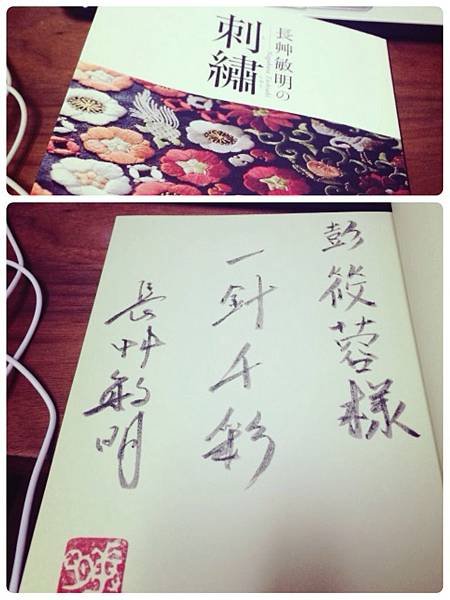 長艸敏明の
刺繍
彭筱蓉様
一針千彩
長艸敏明